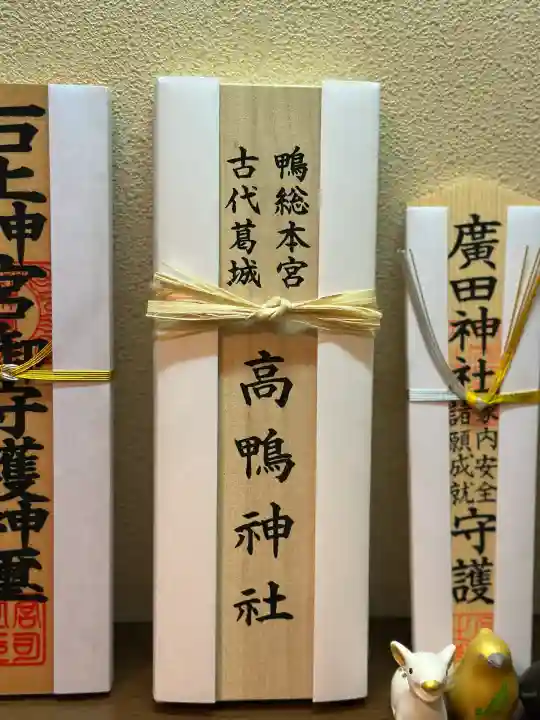 石上神宮御守護神璽
鴨総本宮
古代葛城
高鴨神社
廣田神社
家内安全
諸願成就
守護
宮司